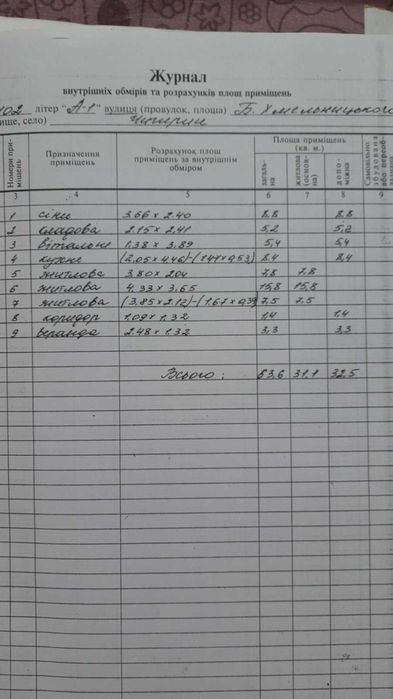 Журнал
внутрішніх обмірів та розрахунків площ приміщень
102 літер "А-1" вулиця (провулок, площа) Б. Хмельницького
ище, село) Чигирин
Номери приміщень Призначення приміщень Розрахунок площ приміщень за внутрішнім обміром Площа приміщень (кв. м.) загальна житлова (основна) допоміжна Самовільно збудована або переоб
3 4 5 6 7 8 9
1 сіни 3.66 × 2.40 8,8 8.8
2 кладова 2.15 × 2.41 5,2 5.2
3 вітальня 1.38 × 3.89 5,4 5.4
4 кухня (2,05 × 4,46)-(1.44 × 0,53) 8,4 8,4
5 житлова 3.80 × 2.04 7,8 7,8
6 житлова 4.33 × 3,65 15,8 15,8
7 житлова (3,85 × 2.12)-(1.67 × 0,39) 7,5 7,5
8 коридор 1.09 × 1.32 1,4 1.4
9 веранда 2.48 × 1.32 3,3 3.3
Всього: 63,6 31,1 32,5